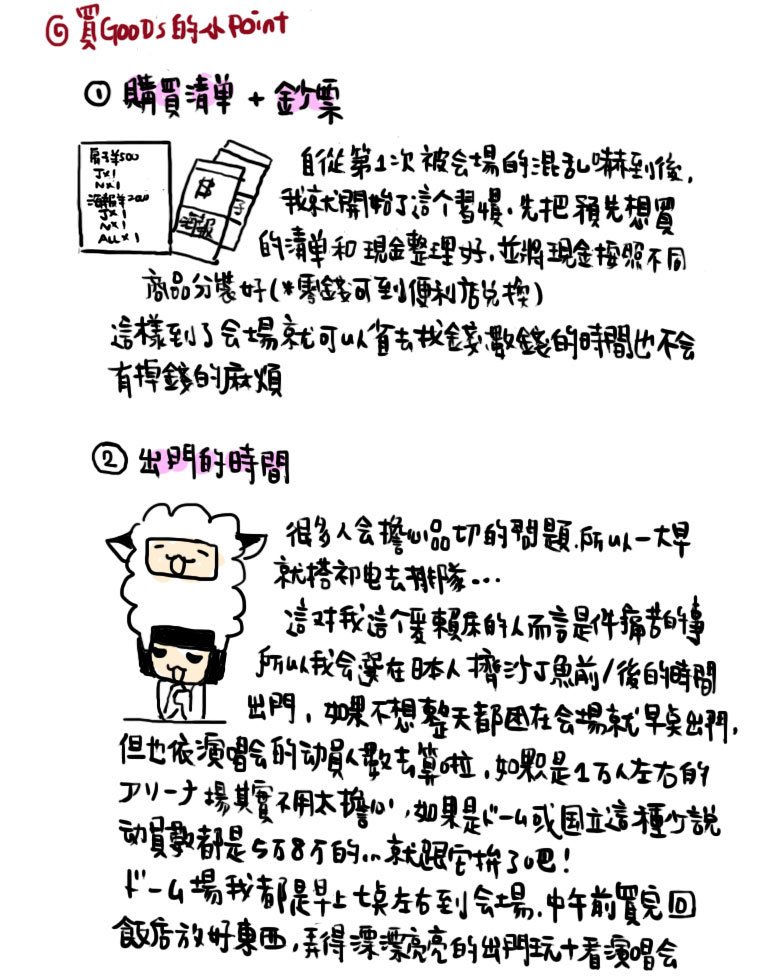 ◎ 買GOODS的小Point
① 購買清单 + 鈔票
扇子¥500
J×1
N×1
海報¥200
J×1
N×1
ALL×1
海報
子
自從第1次被会場的混乱嚇到後,
我就開始了這个習慣,先把預先想買
的清单和現金整理好,並將現金按照不同
商品分裝好(*零錢可到便利店兑換)
這樣到了会場就可以省去找錢散錢的時間也不会
有掉錢的麻煩
② 出門的時間
很多人会擔心品切的問題,所以一大早
就搭初电去排隊...
這对我這个愛賴床的人而言是件痛苦的事
所以我会選在日本人擠沙丁魚前/後的時間
出門,如果不想整天都困在会場就早桌出門,
但也依演唱会的动員人數去算啦,如果是1万人左右的
アリーナ場其實不用太擔心,如果是ドーム或国立這種少説
动員數都是5万8万的...就跟它拚了吧!
ドーム場我都是早上七桌左右到会場,中午前買完回
飯店放好東西,弄得漂漂亮亮的出門玩+看演唱会